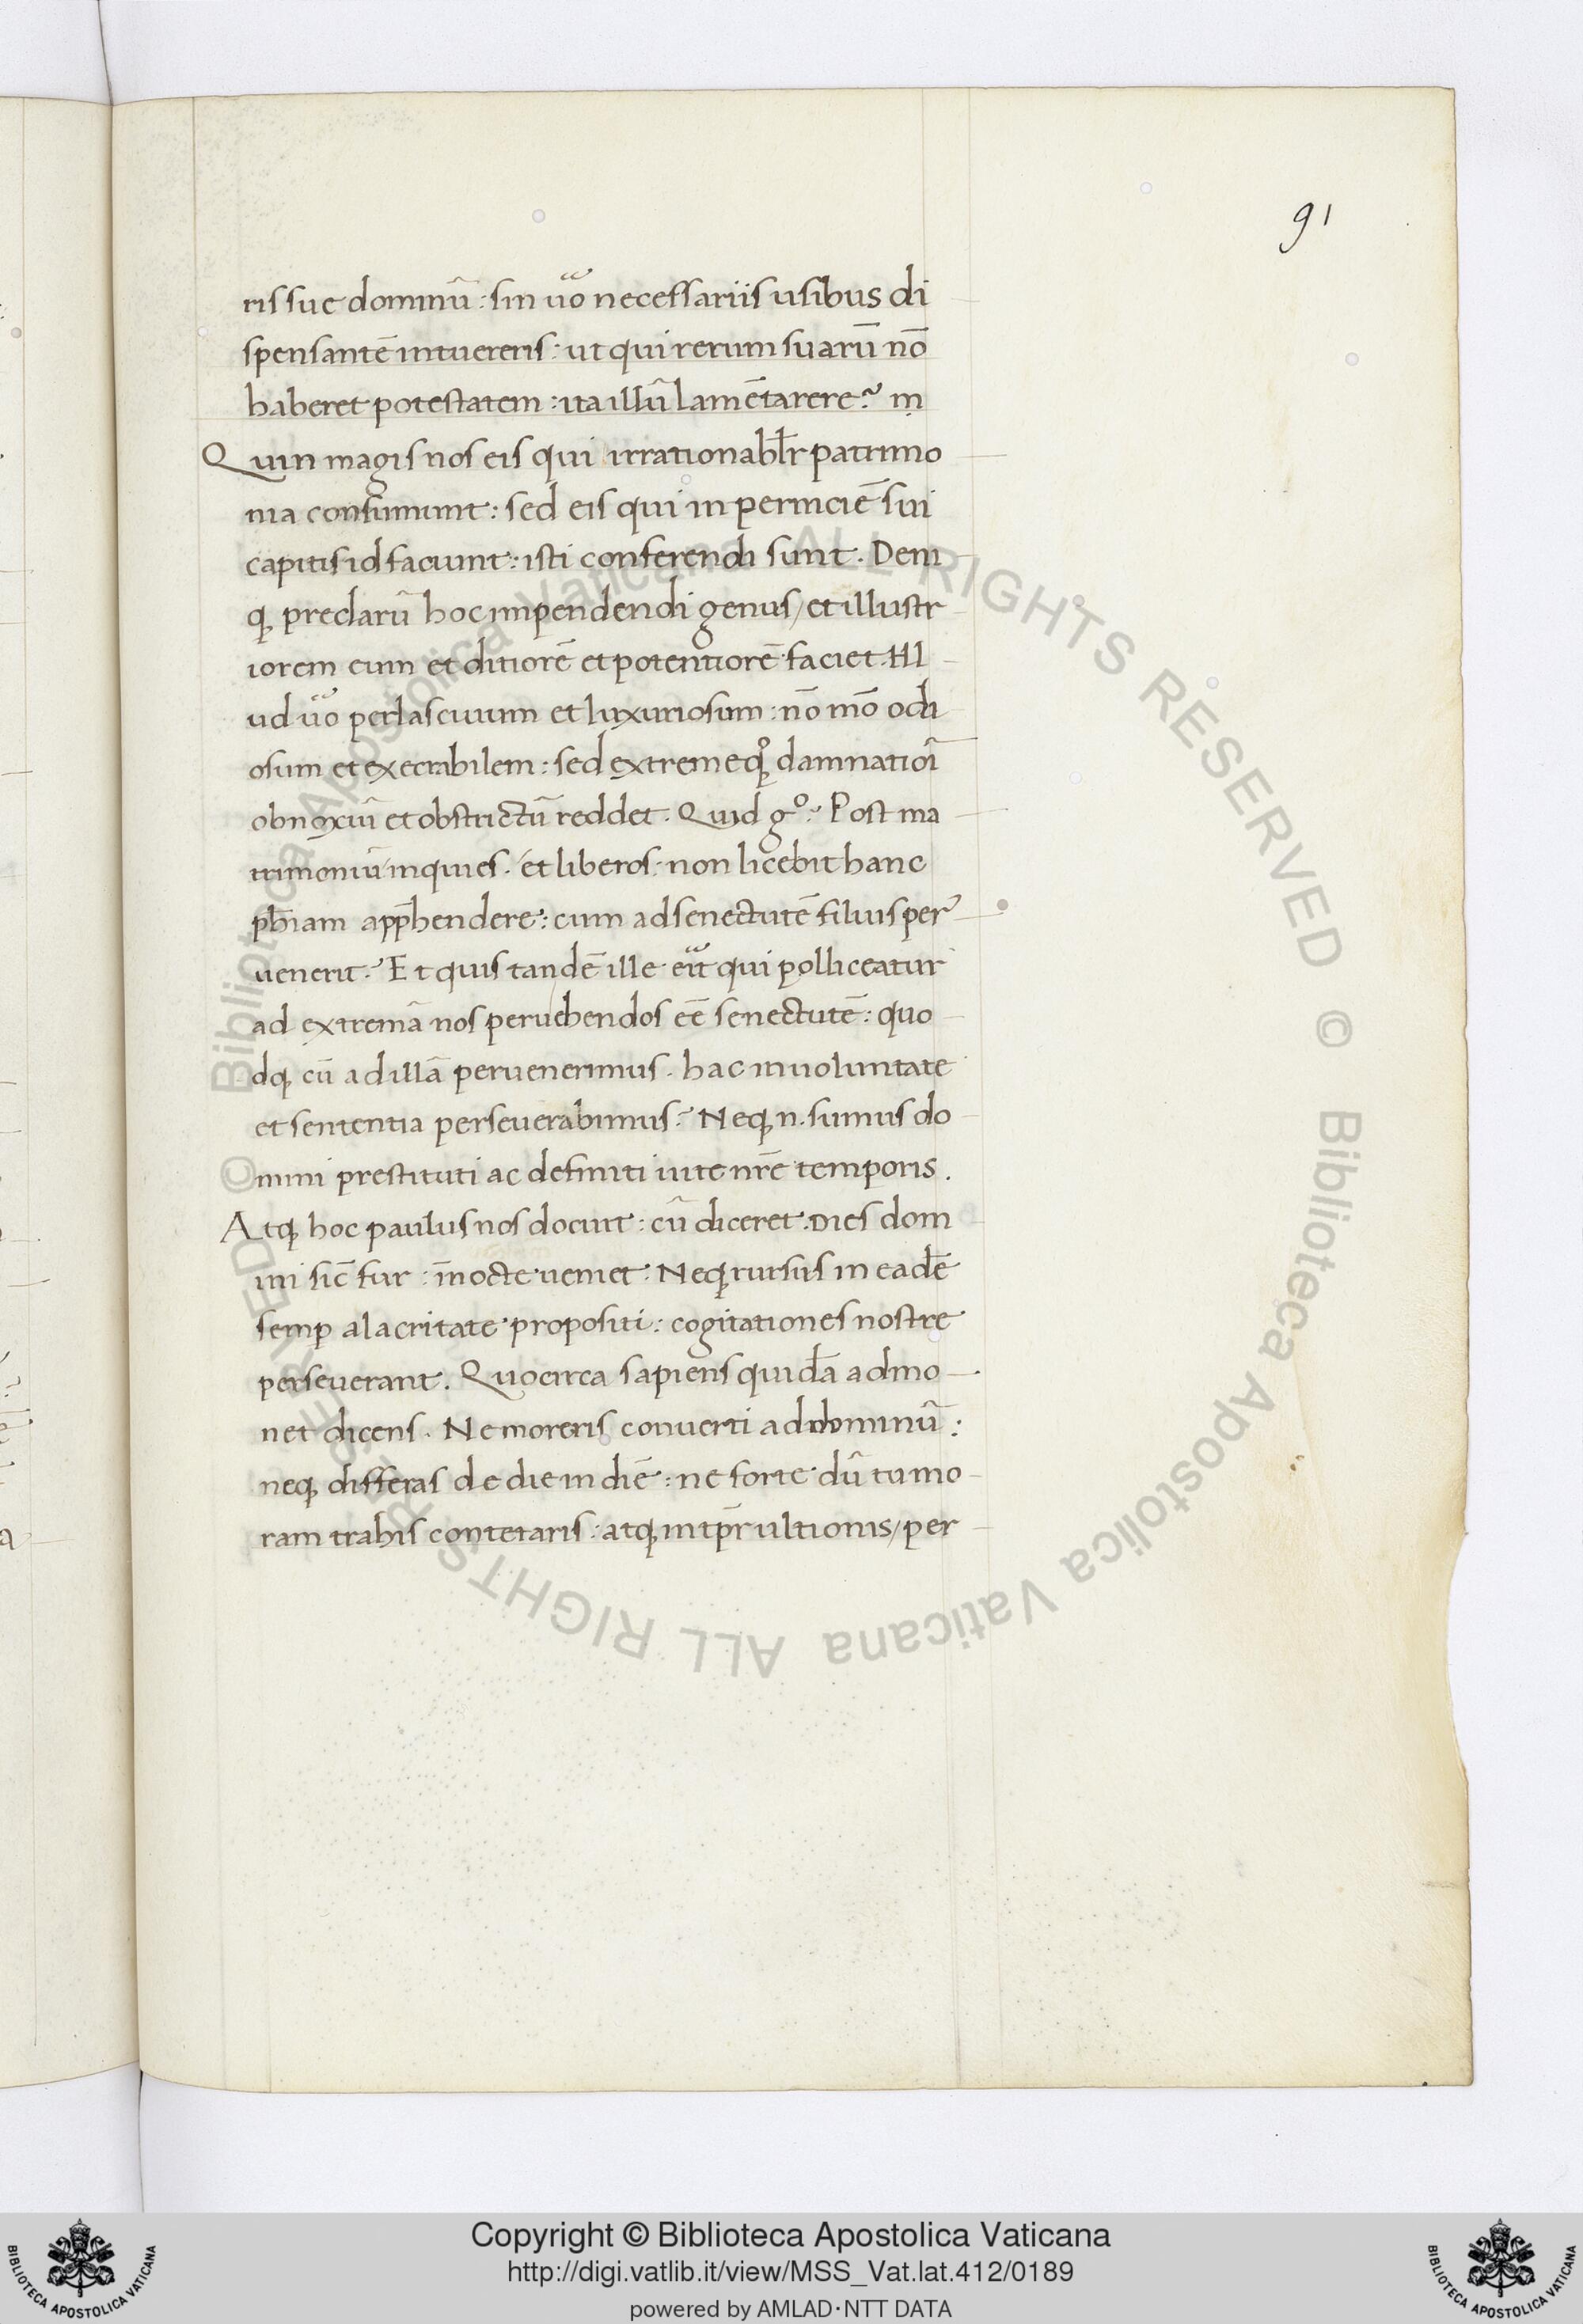 91
ris sue dominū : sin ūo necessariis usibus di
spensantē intuereris : ut qui rerum suarū nō
haberet potestatem : ita illū lamētarere? m
Quin magis nos eis qui irrationabl̄r patrimo
nia consumunt : sed eis qui in perniciē sui
capitis id faciunt : isti conferendi sunt . Deni
qꝫ preclarū hoc impendendi genus / et illustr
iorem eum et ditiorē et potentiorē faciet . Ill
ud ūo perlascivum et luxuriosum : nō mō odi
osum et execrabilem : sed extremeqꝫ damnatiōi
obnoxiū et obstrictū reddet . Quid gº? Post ma
trimoniū inquies . et liberos : non licebit hanc
pħiam app̄hendere : cum ad senectutē filius per
uenerit? Et quis tandē ille erit qui polliceatur
ad extremā nos peruehendos eē senectutē : quo
dqꝫ cū ad illā peruenerimus . hac in uoluntate
et sententia perseuerabimus? Neqꝫ n . sumus do
mini prestituti ac definiti uite nr̄e temporis .
Atqꝫ hoc paulus nos docuit : cū diceret . Dies dom
ini sic̄ fur : ī nocte ueniet . Neqꝫ rursus in eadē
semꝑ alacritate propositi : cogitationes nostre
perseuerant . Quocirca sapiens quidā admo
net dicens . Ne moreris conuerti ad dominū :
neqꝫ differas de die in diē : ne forte dū tu mo
ram trahis conteraris : atqꝫ in tp̄r ultionis / per
© Biblioteca Apostolica Vaticana ALL RIGHTS RESERVED © Biblioteca Apostolica Vaticana ALL RIGHTS RESERVED
BIBLIOTECA APOSTOLICA VATICANA
Copyright © Biblioteca Apostolica Vaticana
http://digi.vatlib.it/view/MSS_Vat.lat.412/0189
powered by AMLAD·NTT DATA
BIBLIOTECA APOSTOLICA VATICANA